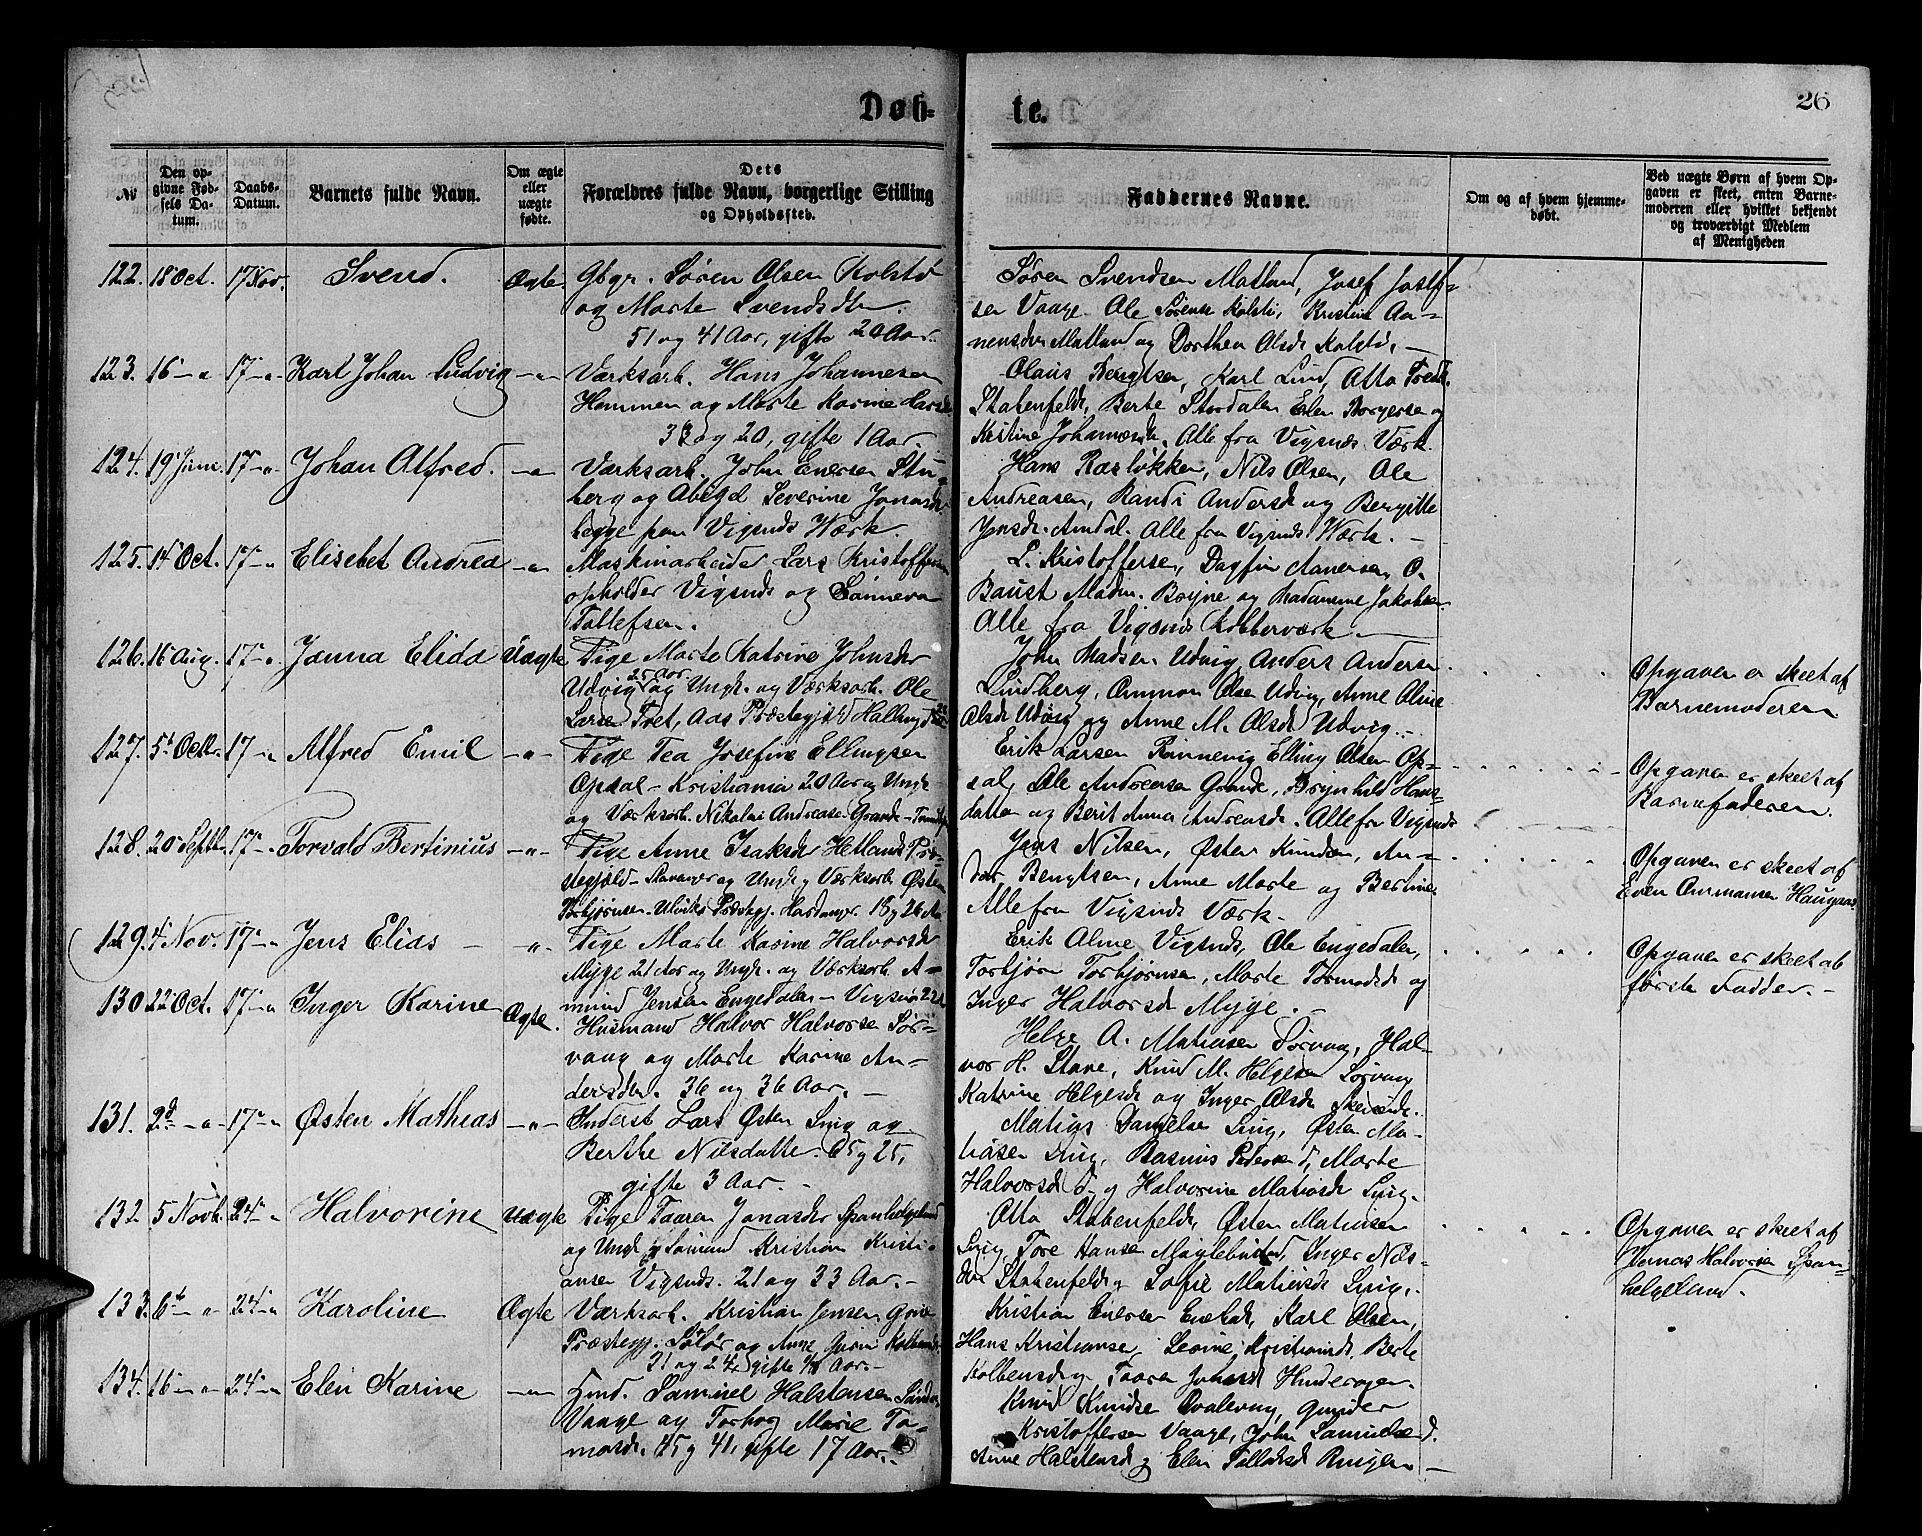 Døb-
te.
26
№
Den opgivne Fødsels Datum.
Daabs-Datum.
Barnets fulde Navn.
Om ægte eller uægte fødte.
Dets Forældres fulde Navn, borgerlige Stilling og Opholdssted.
Faddernes Navne.
Om og af hvem hjemmedøbt.
Ved uægte Børn af hvem Opgaven er skeet, enten Barnemoderen eller hvilket bekjendt og troværdigt Medlem af Menigheden
122. 18 Oct. 17 Nov. Svend. Ægte Gbgr. Søren Olsen Kolstø
og Marte Svendsdtr.
51 og 41 Aar, gifte 20 Aar.
Søren Svendsen Matland, Josef Josef-
sen Vaage. Ole Sørense Kolstø, Kristine Aa-
nensdtr Matland og Dorthea Olsdr Kolstø, —
123. 16 — " 17 — " Karl Johan Ludvig — " — Værksarb. Hans Johannesen
Hommen og Marte Karine
33 og 20, gifte 1 Aar.
Olaus Bengtsen, Karl Lind, Otto Fredr.
Stabenfeldt, Berte Stordalen Elen Borgerse og
Kristine Johannesdr. Alle fra Vigsnes Værk.
124. 19 Juni. 17 — " Johan Alfred. — " — Værksarb. John Enersen Stu-
berg og Abigel Severine Jonasdr
begge paa Vigsnds Værk.
Hans Rasløkken, Nils Olsen, Ole
Andreasen, Randi Andersd og Bergitte
Jensdr. Amdal. Alle fra Vigsnds Værk. —
125. 14 Oct. 17 — " Elisebet Andrea — " — Maskinarbeider Lars Kristoffersen
opholder Vigsnds og Sønneva
Tollefsen.
L. Kristoffersen, Dagfin Aanensen, O.
Baust Madm. Boyne og Madamme Jakobsen.
Alle fra Vigsnds Kobberværk —
126. 16 Aug. 17 — " Janna Elida Uægte Pige Marte Katrine Johnsdr
25 Aar
Udvig og Ungk. og Værksarb. Ole
Larsen Tret, Aas Præstegjeld Halling
John Madsen Udvig, Anders Andersen
Lindberg, Ommon Olsen Udvig, Anne Oline
Olsdr Udvig og Anne M. Olsdr Udvig. —
Opgaven er skeet af
Barnemoderen
127. 5t Octbr. 17 — " Alfred Emil — " — Pige Tea Josefine Ellingsen
Opsal — Kristiania 20 Aar og Ungk
og Værksarb. Nikolai Andrease Grande —
Erik Larsen Rinnevig Elling Olsen Op-
sal, Ole Andreasen Grande, Brynhild Hans-
datter og Berit Anna Andreasdr. Alle fra Vigsnds
Opgaven er skeet af
Barnefaderen.
128. 20 Septbr. 17 — " Torvald Bertinius — " — Pige Anne Isaksdr Hetlands Præ-
stegjeld — Stavanger og Ungk og Værksarb. Østen
Torbjørnsen. Ulviks Præstegj. Hardanger. 18 og 26 Aar
Jens Nilsen, Østen Knudsen, An-
dor Bengtsen, Anne Marte og Bertine
Alle fra Vigsnds Værk.
Opgaven er skeet af
Even Ommansen Haugaas
129. 4 Nov. 17 — " Jens Elias — — " — Pige Marte Karine Halvorsdr
Mygge 21 Aar og Ungk. og Værksarb. A-
mund Jensen Engedalen — Vigsnes 22
Erik Alme Vigsnds, Ole Engedalen,
Torbjørn Torbjørnsen, Marte Tormodsd og
Inger Halvorsd Mygge. —
Opgaven er skeet af
første Fadder. —
130 22 Oct. 17 — " Inger Karine Ægte. Husmand Halvor Halvorsen Sør-
vaag og Marte Karine An-
dersdtr. 36 og 36 Aar. —
Helge A. Matiasen Sørvaag, Hal-
vor H. Stave, Knud M. Helgesen Sørvaag
Katrine Helgesdr og Inger Olsdr
131. 2d — " 17 — " Østen Mathias — " — Inderst Lars Østen Lyng og
Berthe Nilsdatter. 25 og 25,
gifte 3 Aar. —
Matias Danielsen Lyng, Østen Ma-
tiasen Lyng, Rasmus Pedersen d, Marte
Halvorsd d. og Halvorine Matiasdr Lyng.
132. 5 Novb. 24 — " Halvorine Uægte Pige Taaren Jonasdtr Spanhelgeland
og Ungk og Sømand Kristian Kristi-
ansen Vigsnds. 21 og 33 Aar. —
Otto Stabenfeldt, Østen Matiasen
Lyng, Tore Hansen Møglebustad, Inger Nils-
dtr Stabenfeldt og Sofie Matiasdr Lyng.
Opgaven er skeet af
Jonas Halvorsen Span-
helgeland.
133. 6t — " 24 — " Karoline Ægte Værksarb. Kristian Jensen Grue
Præstegj. Solør og Anne Gurine Kolbensdr
31 og 24 gifte Aar. —
Kristian Enersen Karl Olsen,
Hans Kristiansen, Leonine Kristiansdr. Berte
Kolbensdr og Taaren Johnsd
134. 16 — " 24 — " Elen Karine — " — Hmd. Samuel Halstensen Søndre
Vaage og Torborg Marie To-
masdr. 45 og 41, gifte 17 Aar. —
Knud Knudsen Kvalevaag, Gunder
Kristoffersen Vaage, John Samuelsen d.
Anne Halstensd og Elen Ringen —